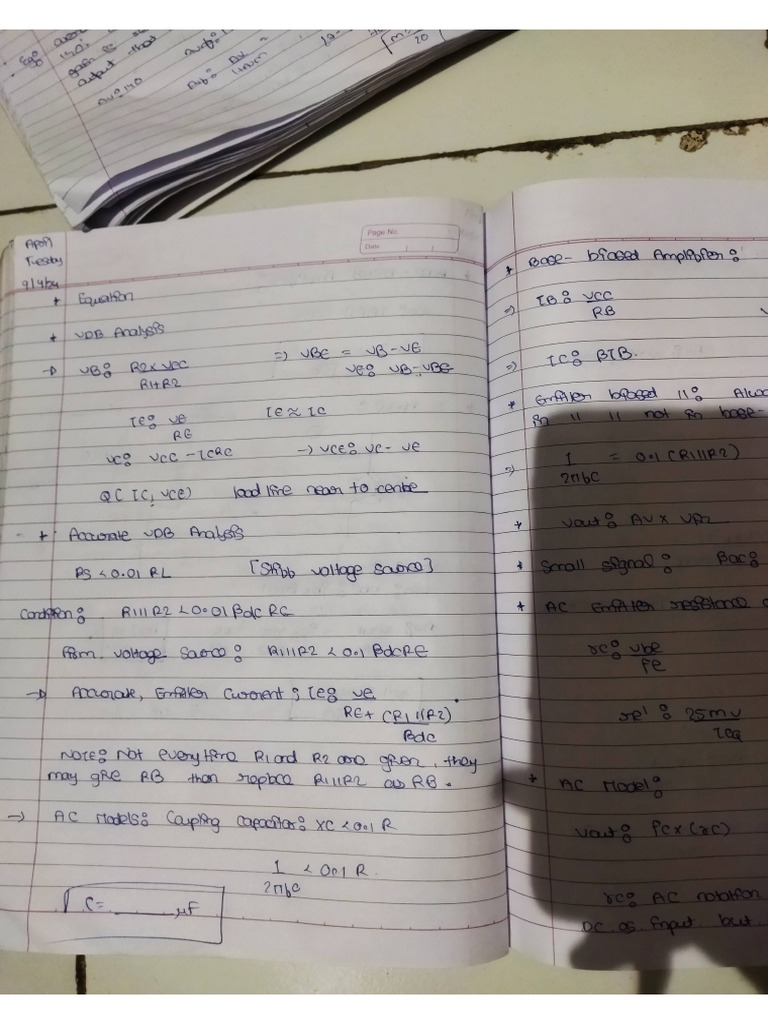 output that
Page No.
Date
April
Tuesday
9/4/24
* Equation
* VDB Analysis
→ VB: R2 x VCC / R1+R2 ⇒ VBE = VB - VE
VE: VB - VBE
IE: VE / RE IE ≈ IC
VC: VCC - ICRC → VCE: VC - VE
Q(IC, VCE) load line near to centre
* Accurate VDB Analysis
RS < 0.01 RL [Stiff voltage source]
Condition: R1||R2 < 0.01 βdc RC
Firm voltage source: R1||R2 < 0.1 βdc RE
→ Accurate, Emitter Current; IE: VE / RE + (R1||R2) / βdc
NOTE: Not everytime R1 and R2 are given, they
may give RB then replace R1||R2 as RB.
→ AC Models: Coupling capacitor: XC < 0.1 R
1 / 2πfC < 0.1 R
C = ______ μF
* Base-biased Amplifier:
⇒ IB: VCC / RB
⇒ IC: βIB.
* Emitter biased ||:
in || || not in base-
⇒ 1 / 2πfC = 0.1 (R1||R2)
* Vout: AV x Vin
* Small signal: βac:
* AC Emitter resistance
re: vbe / ie
re': 25mV / IEQ
* AC Model:
Vout: ic x (rc)
rc: AC notation
DC as input but